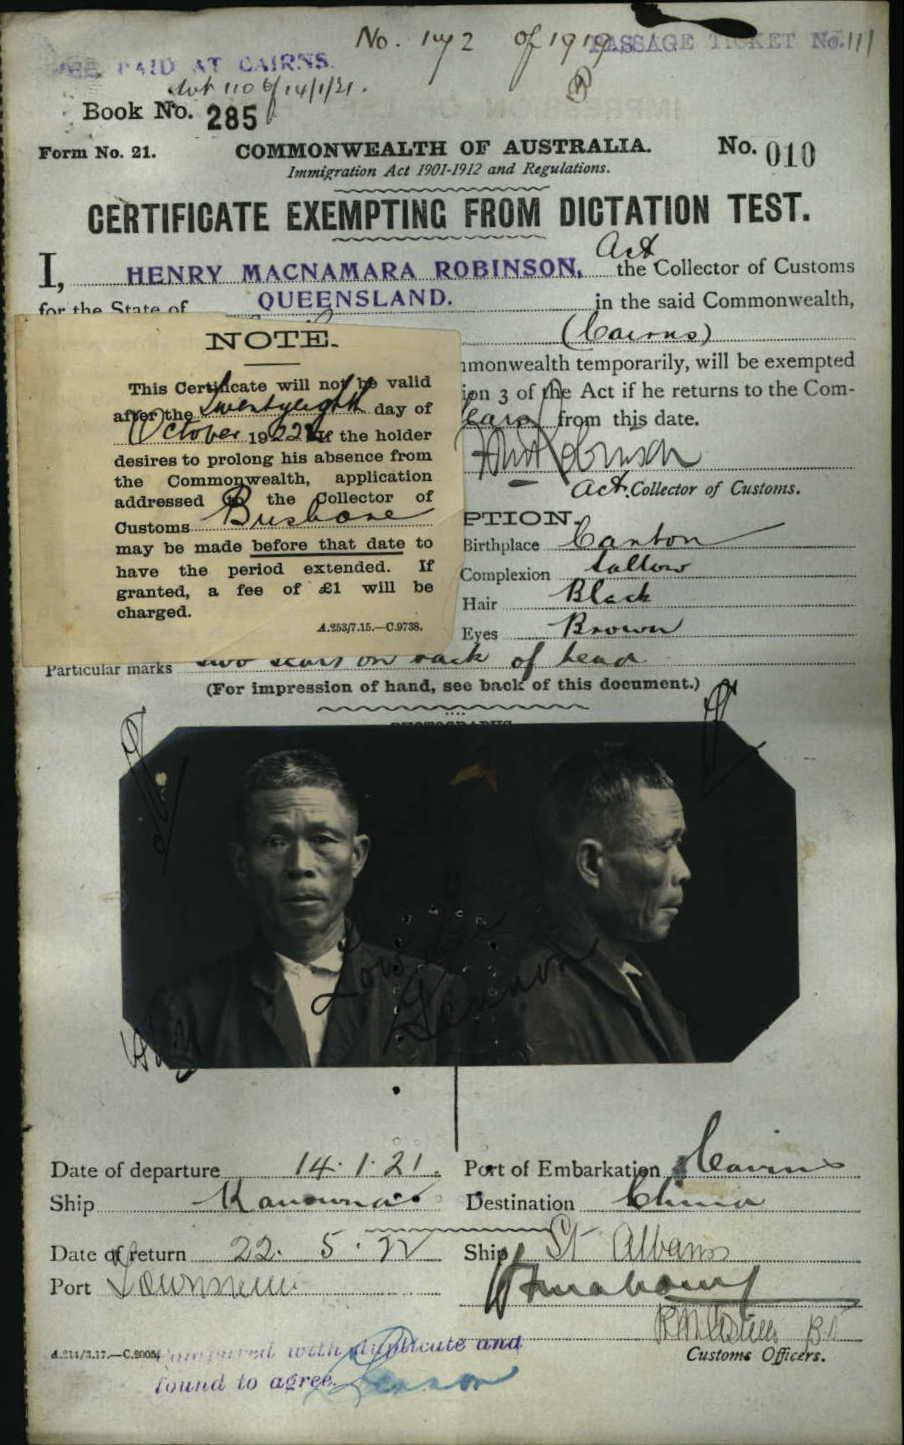 No. 142 of 1919
PASSAGE TICKET No. 111
PAID AT CAIRNS.
110 of 14/1/21.
Book No. 285
Form No. 21.
COMMONWEALTH OF AUSTRALIA.
No. 010
Immigration Act 1901-1912 and Regulations.
CERTIFICATE EXEMPTING FROM DICTATION TEST.
Act
I, HENRY MACNAMARA ROBINSON, the Collector of Customs
for the State of QUEENSLAND. in the said Commonwealth,
(Cairns)
mmonwealth temporarily, will be exempted
ion 3 of the Act if he returns to the Com-
from this date.
Act. Collector of Customs.
NOTE.
This Certificate will not be valid
after the Twentyeighth day of
October 1922. If the holder
desires to prolong his absence from
the Commonwealth, application
addressed to the Collector of
Customs Brisbane
may be made before that date to
have the period extended. If
granted, a fee of £1 will be
charged.
A.253/7.15.—C.9738.
PTION.
Birthplace Canton
Complexion Sallow
Hair Black
Eyes Brown
Particular marks two scars on back of head
(For impression of hand, see back of this document.)
PHOTOGRAPHS
Date of departure 14.1.21.
Port of Embarkation Cairns
Ship Kanowna
Destination China
Date of return 22.5.22
Ship St Albans
Port Townsville
Customs Officers.
Compared with duplicate and
found to agree.